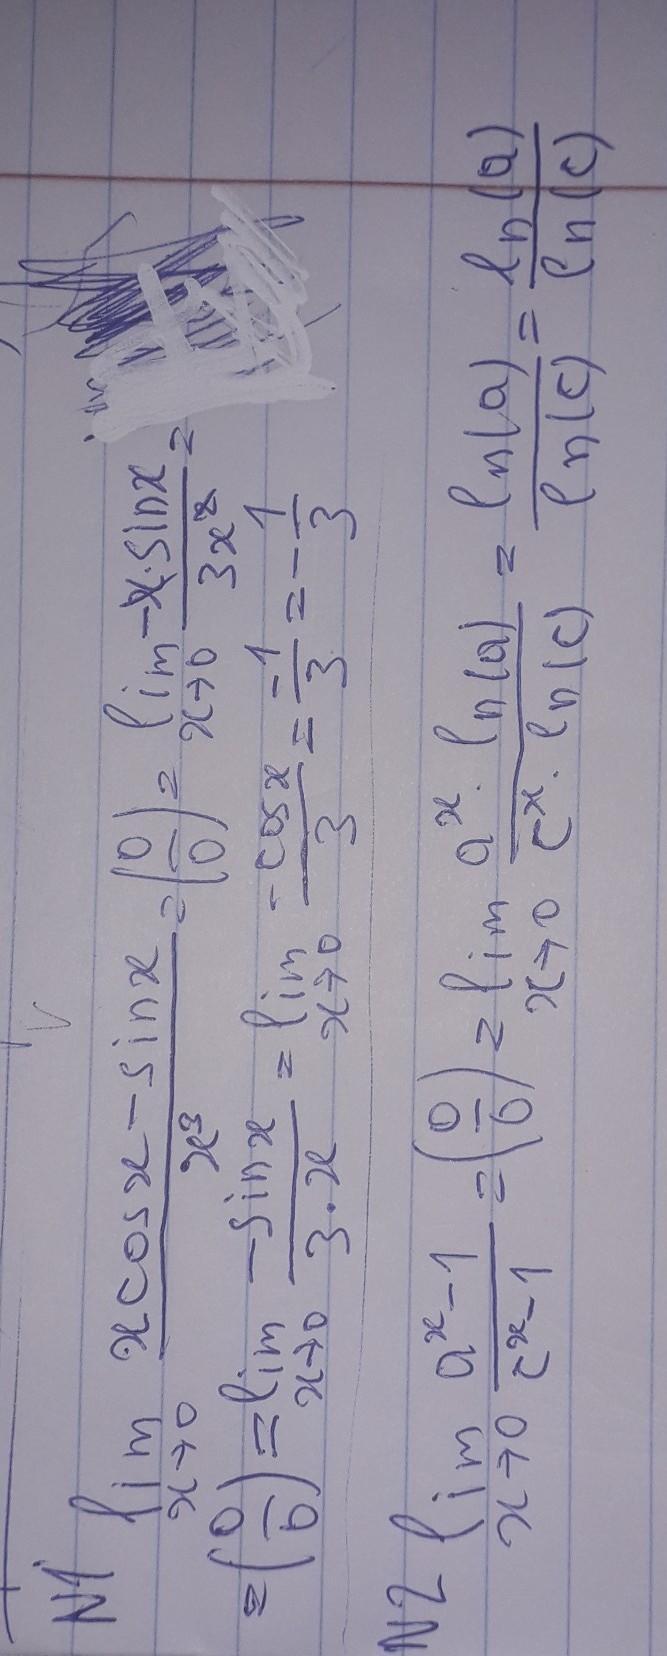 N1 lim x→0 (x cosx − sinx)/x³ = (0/0) = lim x→0 (−x·sinx)/(3x²) =
= (0/0) = lim x→0 (−sinx)/(3·x) = lim x→0 (−cosx)/3 = (−1)/3 = −1/3
N2 lim x→0 (aˣ−1)/(cˣ−1) = (0/0) = lim x→0 (aˣ·ln(a))/(cˣ·ln(c)) = ln(a)/ln(c) = ln(a)/ln(c)